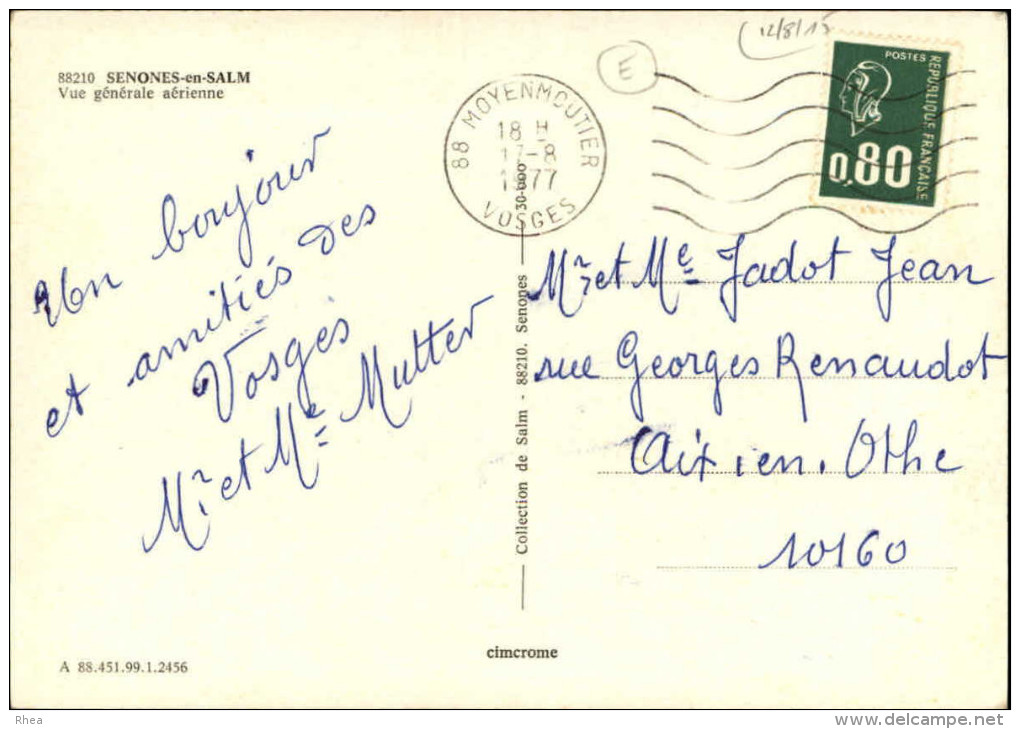 88210 SENONES-en-SALM
Vue générale aérienne
Un bonjour
et amitiés des
Vosges
Mr et Me Mutter
A 88.451.99.1.2456
Collection de Salm - 88210. Senones 30-000
cimcrome
E
12/8/15
88 MOYENMOUTIER
18 H
17-8
1977
VOSGES
POSTES
REPUBLIQUE FRANÇAISE
0,80
Mr et Me Jadot Jean
rue Georges Renaudot
Aix en. Othe
10160
Rhea
www.delcampe.net